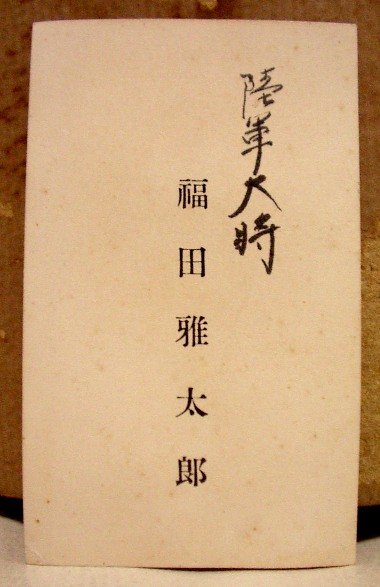 陸軍大将
福田雅太郎